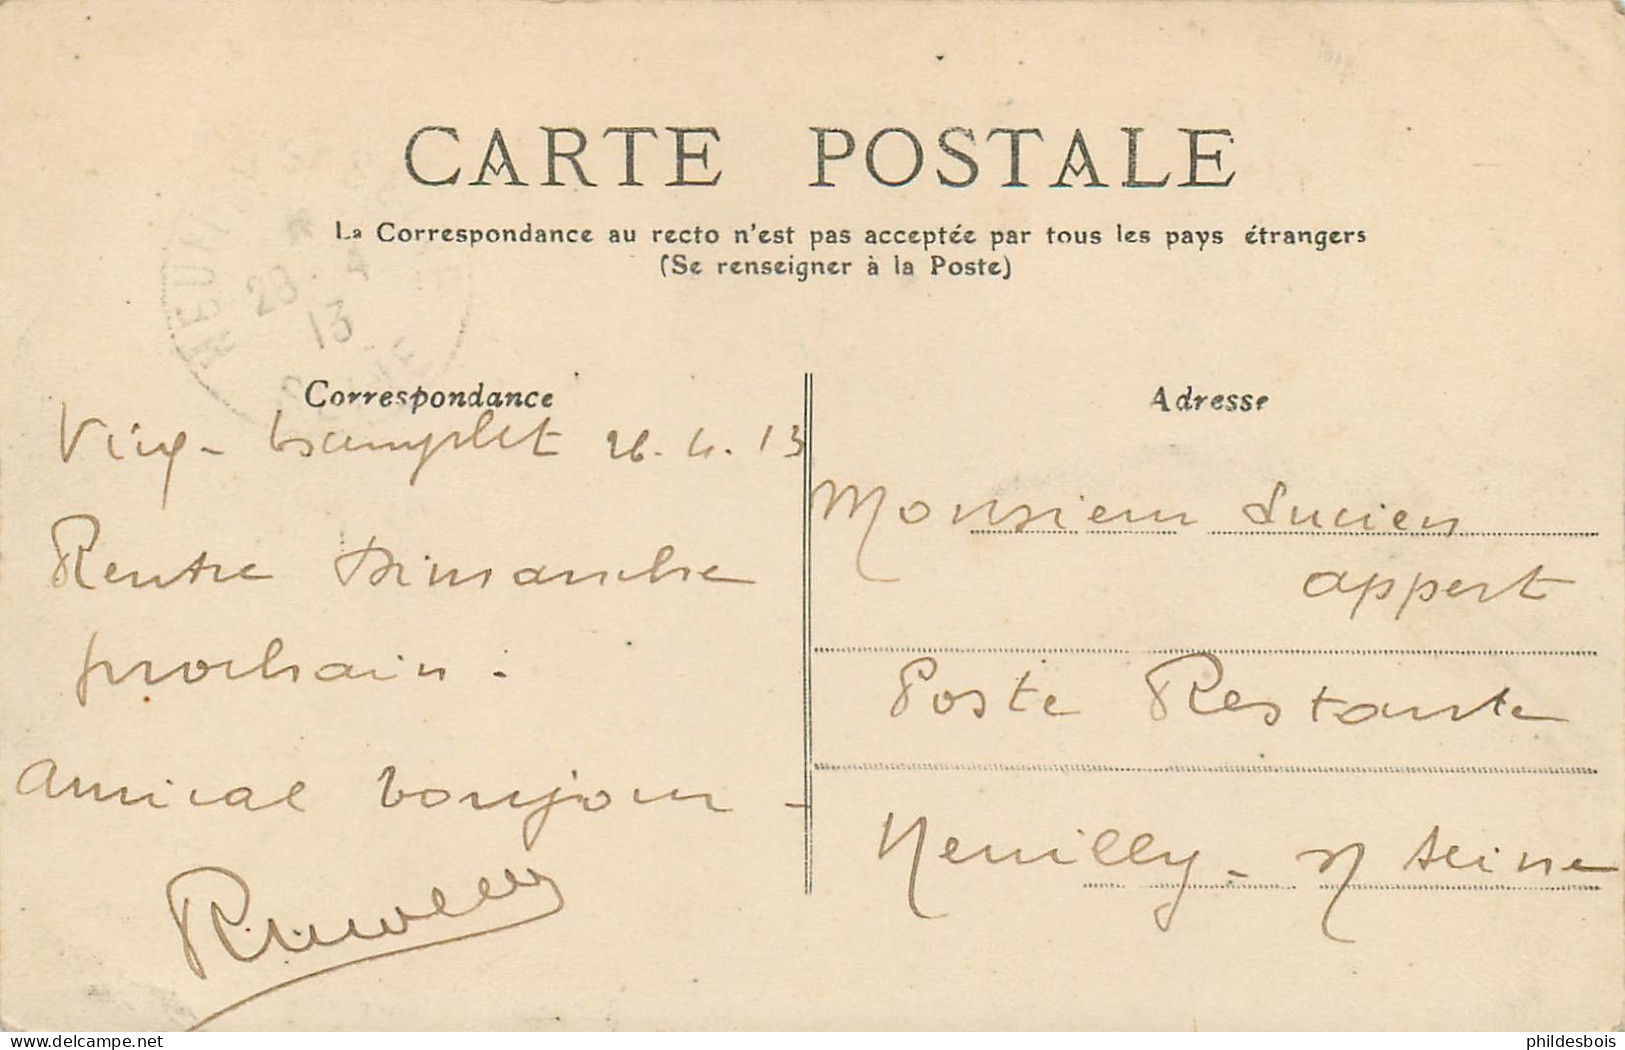 CARTE POSTALE
La Correspondance au recto n'est pas acceptée par tous les pays étrangers
(Se renseigner à la Poste)
28 4
13
Correspondance
26.4.13
Rentre Dimanche
prochain.
amical bonjour -
Adresse
Monsieur Lucien
appert
Poste Restante
Neuilly - s/ Seine
delcampe.net
phildesbois